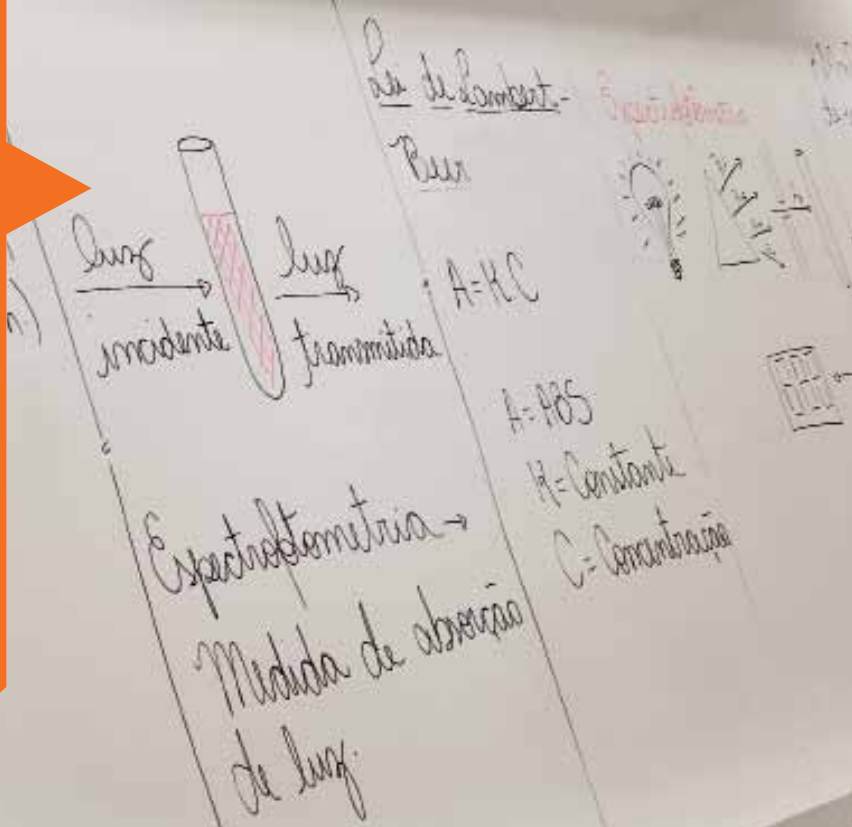 luz
incidente
luz
transmitida
Espectrofotometria →
Medida de absorção
de luz.
Lei de Lambert-
Beer
A=KC
A=ABS
K=Constante
C=Concentração